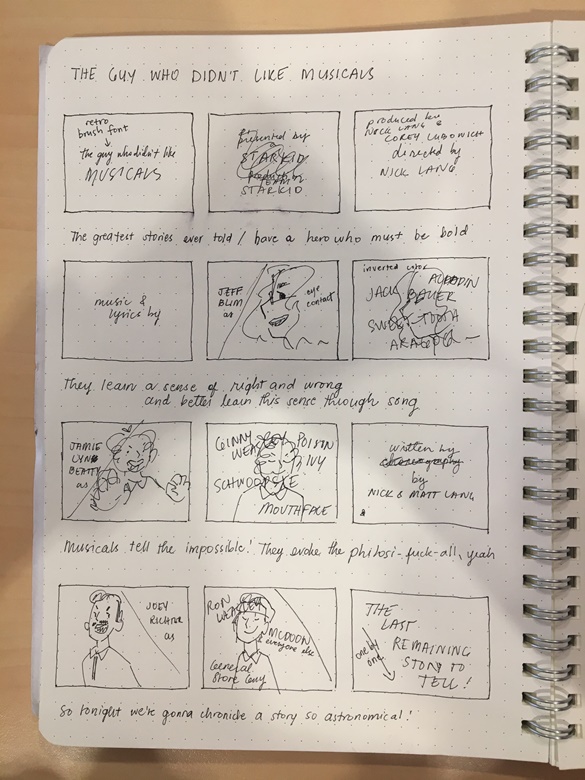 THE GUY WHO DIDN'T LIKE MUSICALS
retro
brush font
the guy who didn't like
MUSICALS
presented by
STARKID
STARKID
produced by
NICK LANG &
COREY LUBOWICH
directed by
NICK LANG
The greatest stories ever told / have a hero who must be bold
music &
lyrics by
JEFF
BLIM
as
eye
contact
inverted color
ALADDIN
JACK BAUER
SWEET TOOTH
ARAGORN
They learn a sense of right and wrong
and better learn this sense through song
JAMIE
LYN
BEATTY
as
GINNY
WEASLEY
POISON
IVY
SCHMOOPSIE
MOUTHFACE
written by
choreography
by
NICK & MATT LANG
&
Musicals tell the impossible! They evoke the philosi-fuck-all, yeah
JOEY
RICHTER
as
RON
WEASLEY
MCDOON
everyone else
General
Store Guy
THE
LAST
REMAINING
STORY TO
TELL!
one by
one
So tonight we're gonna chronicle a story so astronomical!